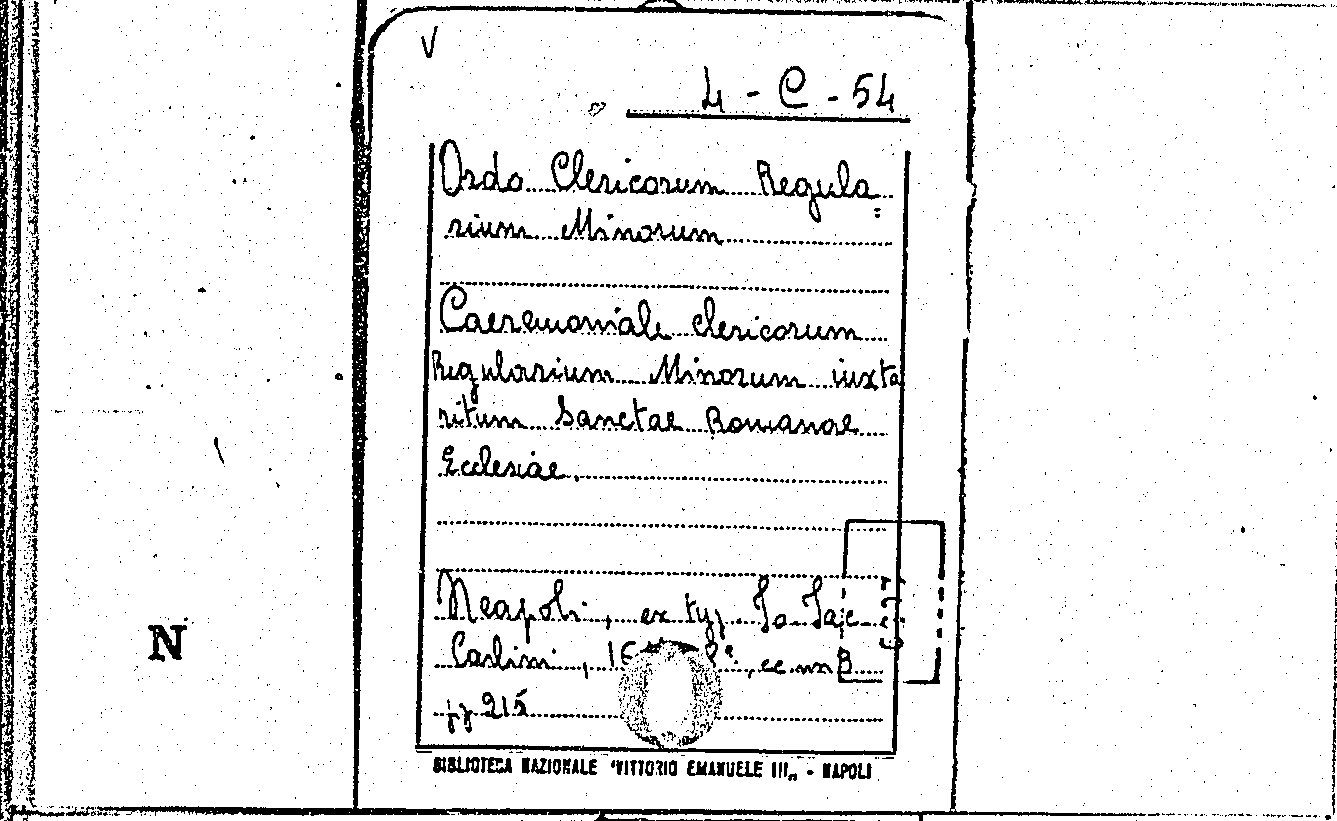 V
4 - C - 54
Ordo Clericorum Regula=
rium Minorum
Caeremoniale clericorum
Regularium Minorum iuxta
ritum Sanctae Romanae
Ecclesiae.
Neapoli, ex typ. Jo. Jac.
Carlini, 16 8°, cc nn 8
pp 215
N
BIBLIOTECA NAZIONALE "VITTORIO EMANUELE III„ - NAPOLI